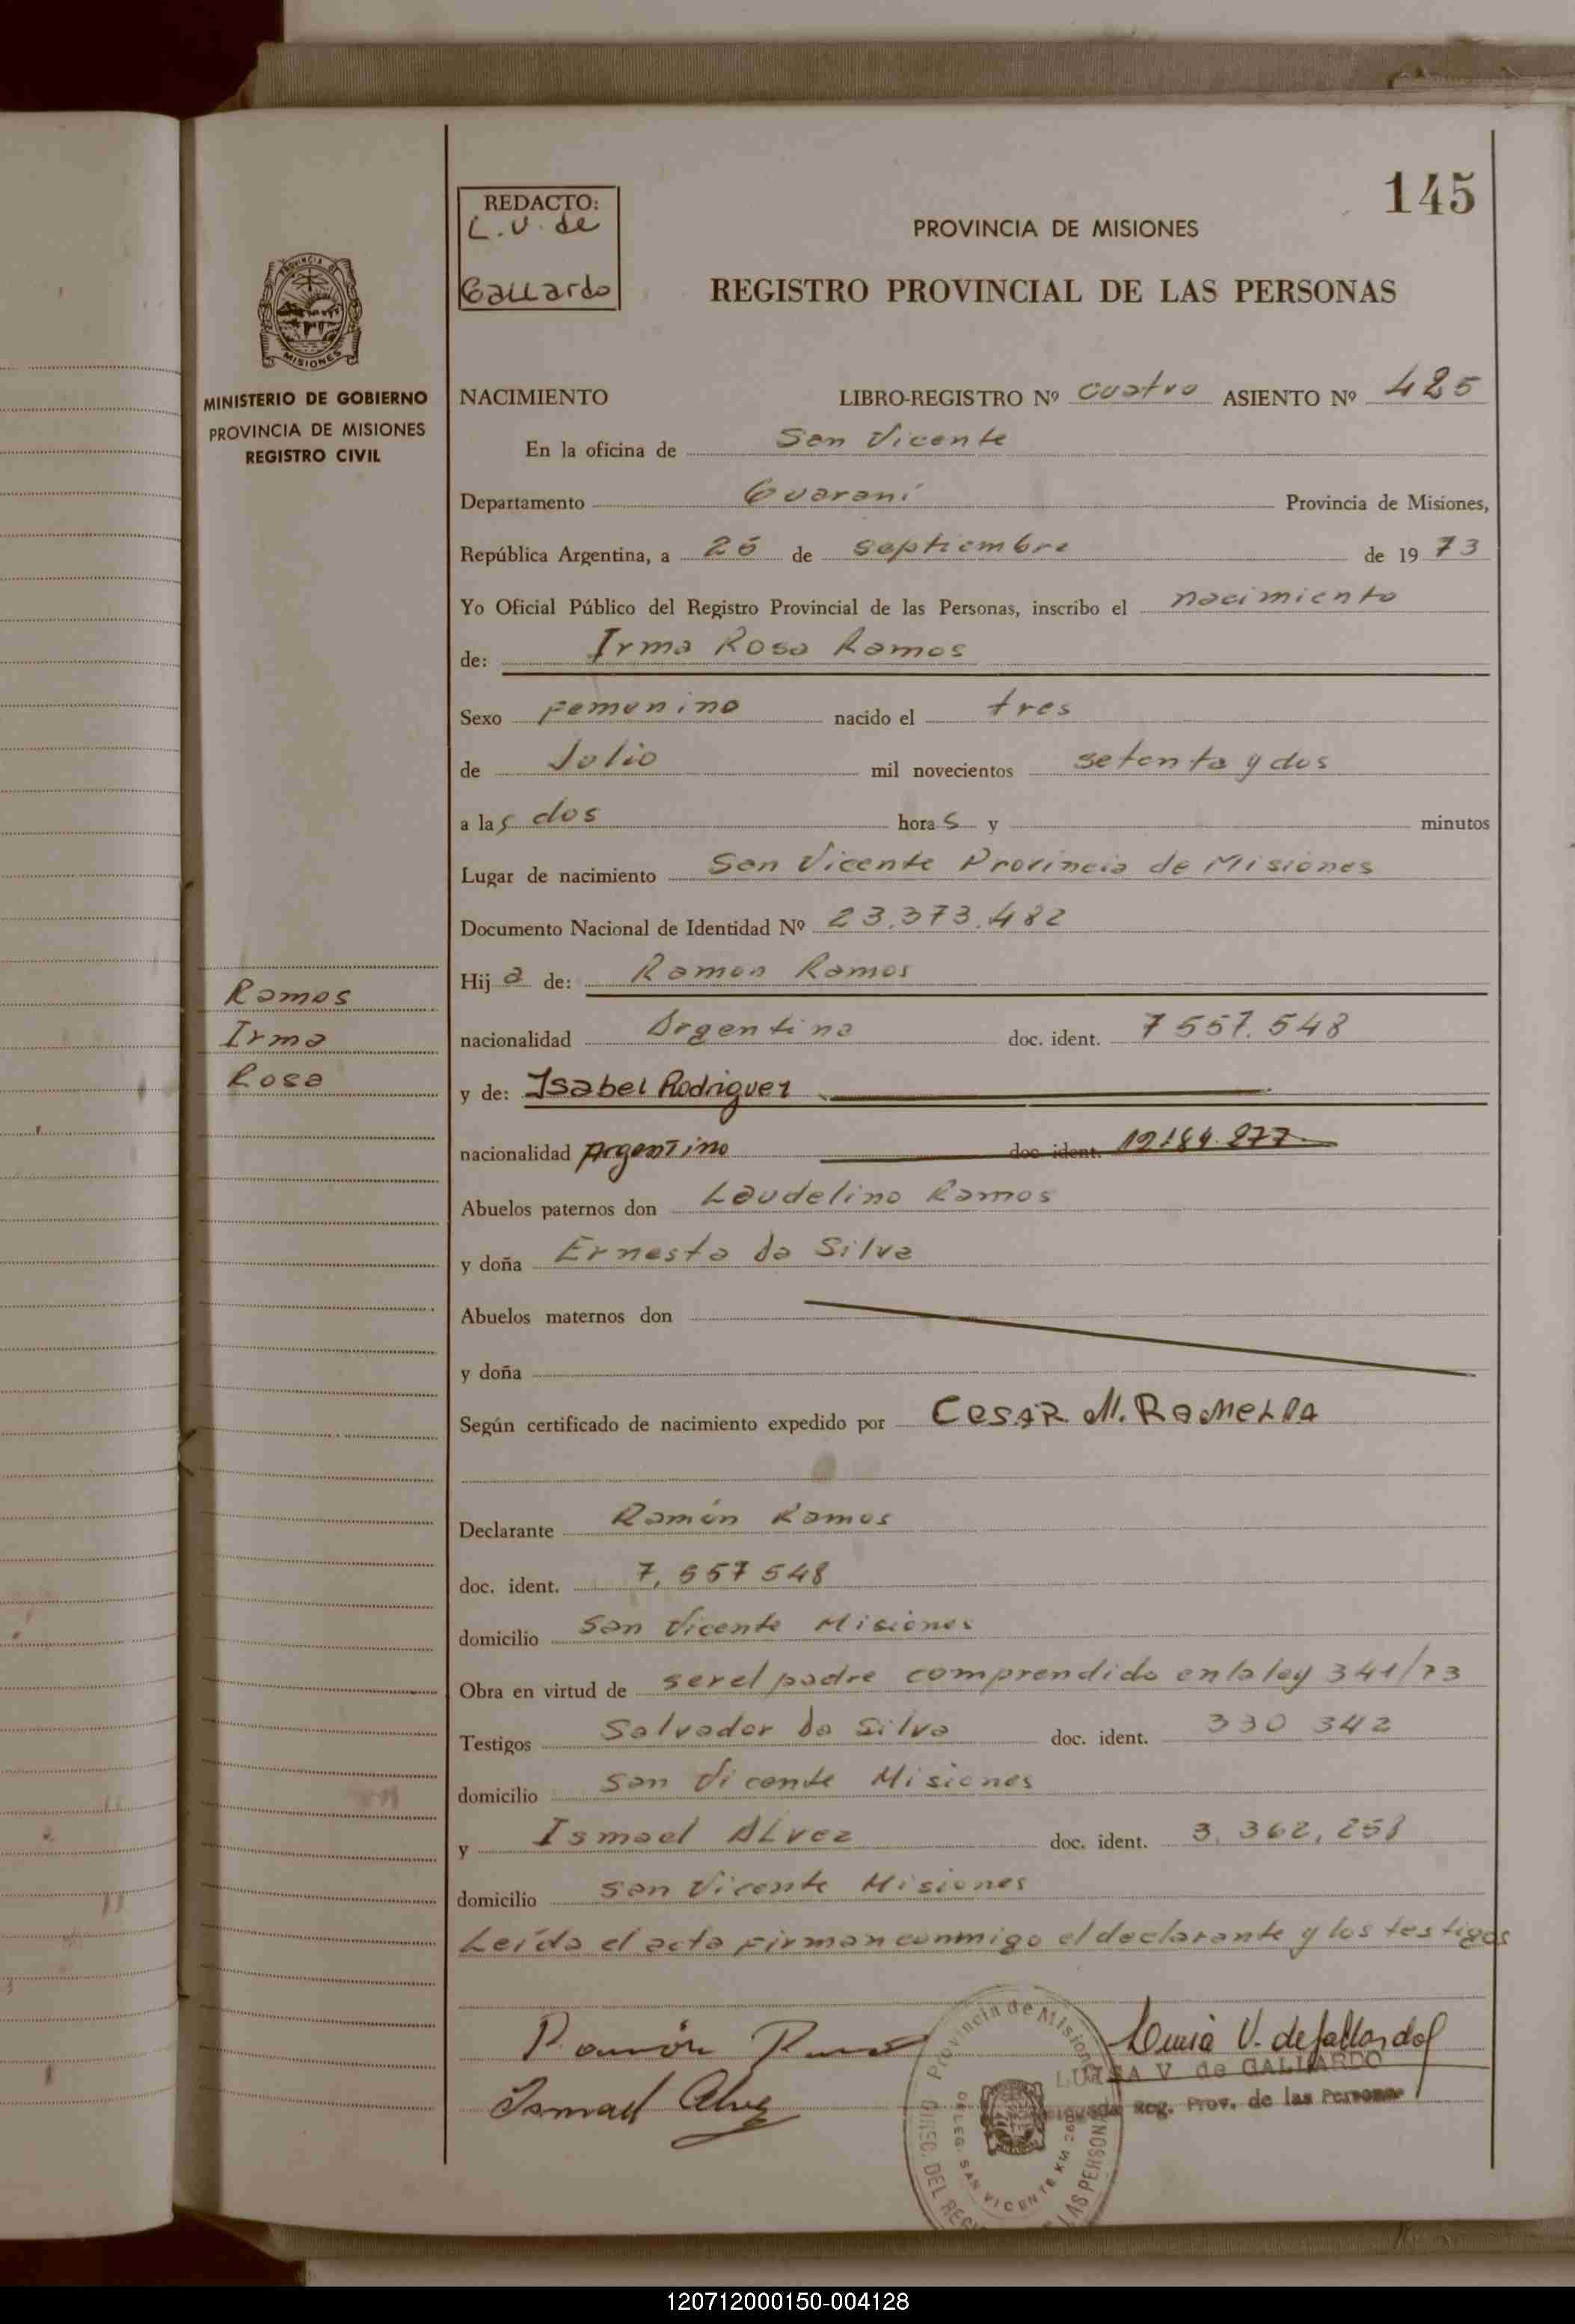 145
REDACTO:
L.V. de
Gallardo
PROVINCIA DE MISIONES
REGISTRO PROVINCIAL DE LAS PERSONAS
PROVINCIA DE
MISIONES
MINISTERIO DE GOBIERNO
PROVINCIA DE MISIONES
REGISTRO CIVIL
NACIMIENTO LIBRO-REGISTRO Nº cuatro ASIENTO Nº 425
En la oficina de San Vicente
Departamento Guaraní Provincia de Misiones,
República Argentina, a 25 de septiembre de 1973
Yo Oficial Público del Registro Provincial de las Personas, inscribo el nacimiento
de: Irma Rosa Ramos
Sexo femenino nacido el tres
de Julio mil novecientos setenta y dos
a las dos horas y minutos
Lugar de nacimiento San Vicente Provincia de Misiones
Documento Nacional de Identidad Nº 23.373.482
Hija de: Ramon Ramos
Ramos
Irma
Rosa
nacionalidad Argentina doc. ident. 7557.548
y de: Isabel Rodriguez
nacionalidad Argentino doc ident. 12184.277
Abuelos paternos don Laudelino Ramos
y doña Ernesta da Silva
Abuelos maternos don
y doña
Según certificado de nacimiento expedido por CESAR M. RAMELLA
Declarante Ramón Ramos
doc. ident. 7,557548
domicilio San Vicente Misiones
Obra en virtud de ser el padre comprendido en la ley 341/73
Testigos Salvador da Silva doc. ident. 330 342
domicilio San Vicente Misiones
y Ismael Alvez doc. ident. 3.362,258
domicilio San Vicente Misiones
Leída el acta firman conmigo el declarante y los testigos
Ramón Ramos
Ismael Alvez
Luisa V. de Gallardo
LUISA V. de GALLARDO
Reg. Prov. de las Personas
Provincia de Misiones
DELEG. SAN VICENTE KM
DIREC. DEL REG LAS PERSON
120712000150-004128